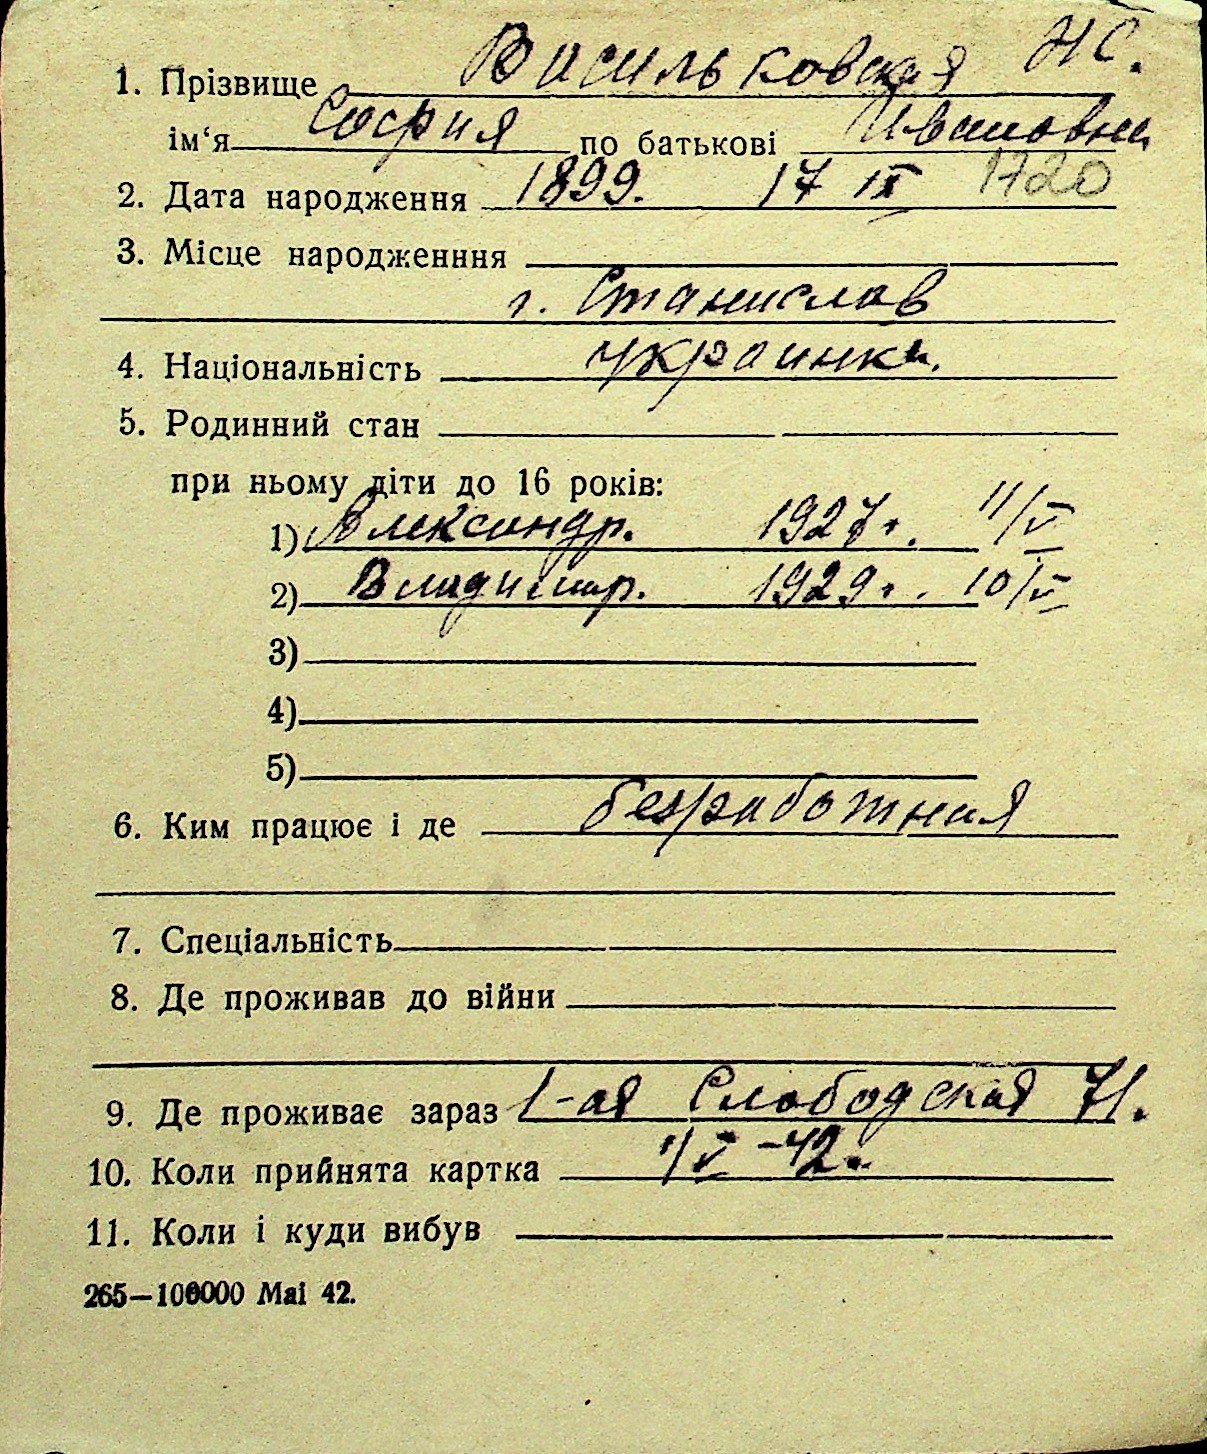 1. Прізвище Васильковская НС.
ім‘я София по батькові Ивановна
2. Дата народження 1899. 17 IX 1720
3. Місце народженння
г. Станислав
4. Національність украинка.
5. Родинний стан
при ньому діти до 16 років:
1) Александр. 1927г. 11/V
2) Владимир. 1929г. 10/V
3)
4)
5)
6. Ким працює і де безработная
7. Спеціальність
8. Де проживав до війни
9. Де проживає зараз 1-ая Слободская 71.
10. Коли прийнята картка V -42г.
11. Коли і куди вибув
265—100000 Mai 42.